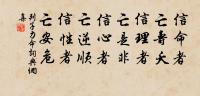 信命者
亡壽夭
信理者
亡是非
信心者
亡逆順
信性者
亡安危
列子力命詞典網
集